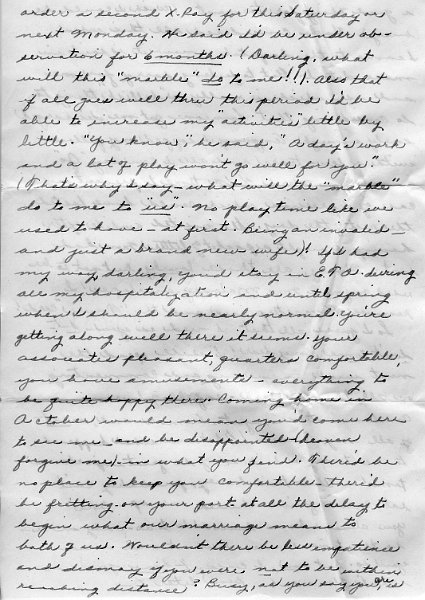 order a second X-Ray for this Saturday or
next Monday. He said I'd be under ob-
servation for 6 months. (Darling, what
will this "marble" do to me!!). Also that
if all goes well thru this period I'd be
able to increase my "activities" little by
little. "You know," he said, "A day's work
and a lot of play won't go well for you."
(That's why I say - what will the "marble"
do to me to "us". No play time like we
used to have - at first. Being an invalid
and just a brand new wife)! If I had
my way, darling, you'd stay in E.T.O. during
all my hospitalization and until spring
when I should be nearly normal. You're
getting along well there it seems. Your
associates pleasant, quarters comfortable,
you have amusements - everything to
be quite happy there. Coming home in
October would mean you'd come here
to see me and be disappointed (heaven
forgive me) - in what you find. There'd be
no place to keep you comfortable - there'd
be fretting on your part at all the delay to
begin what our marriage means to
both of us. Wouldn't there be less impatience
and dismay if you were not to be within
reaching distance? Busy, as you say you are, is